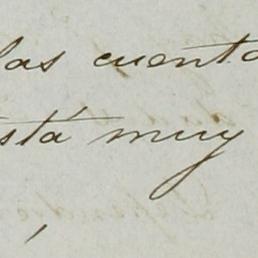 las cuenta
está muy
,